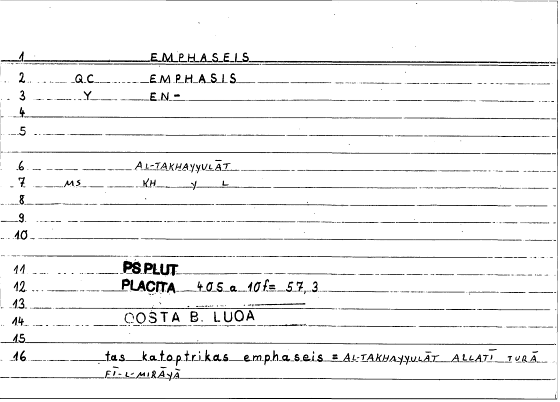 1 EMPHASEIS
2 QC EMPHASIS
3 Y EN-
4
5
6 AL-TAKHAYYULĀT
7 MS KH Y L
8
9
10
11 PS PLUT
12 PLACITA 405 a 10f= 57,3
13
14 COSTA B. LUOA
15
16 tas katoptrikas emphaseis = AL-TAKHAYYULĀT ALLATĪ TURĀ
FĪ-L-MIRĀYĀ